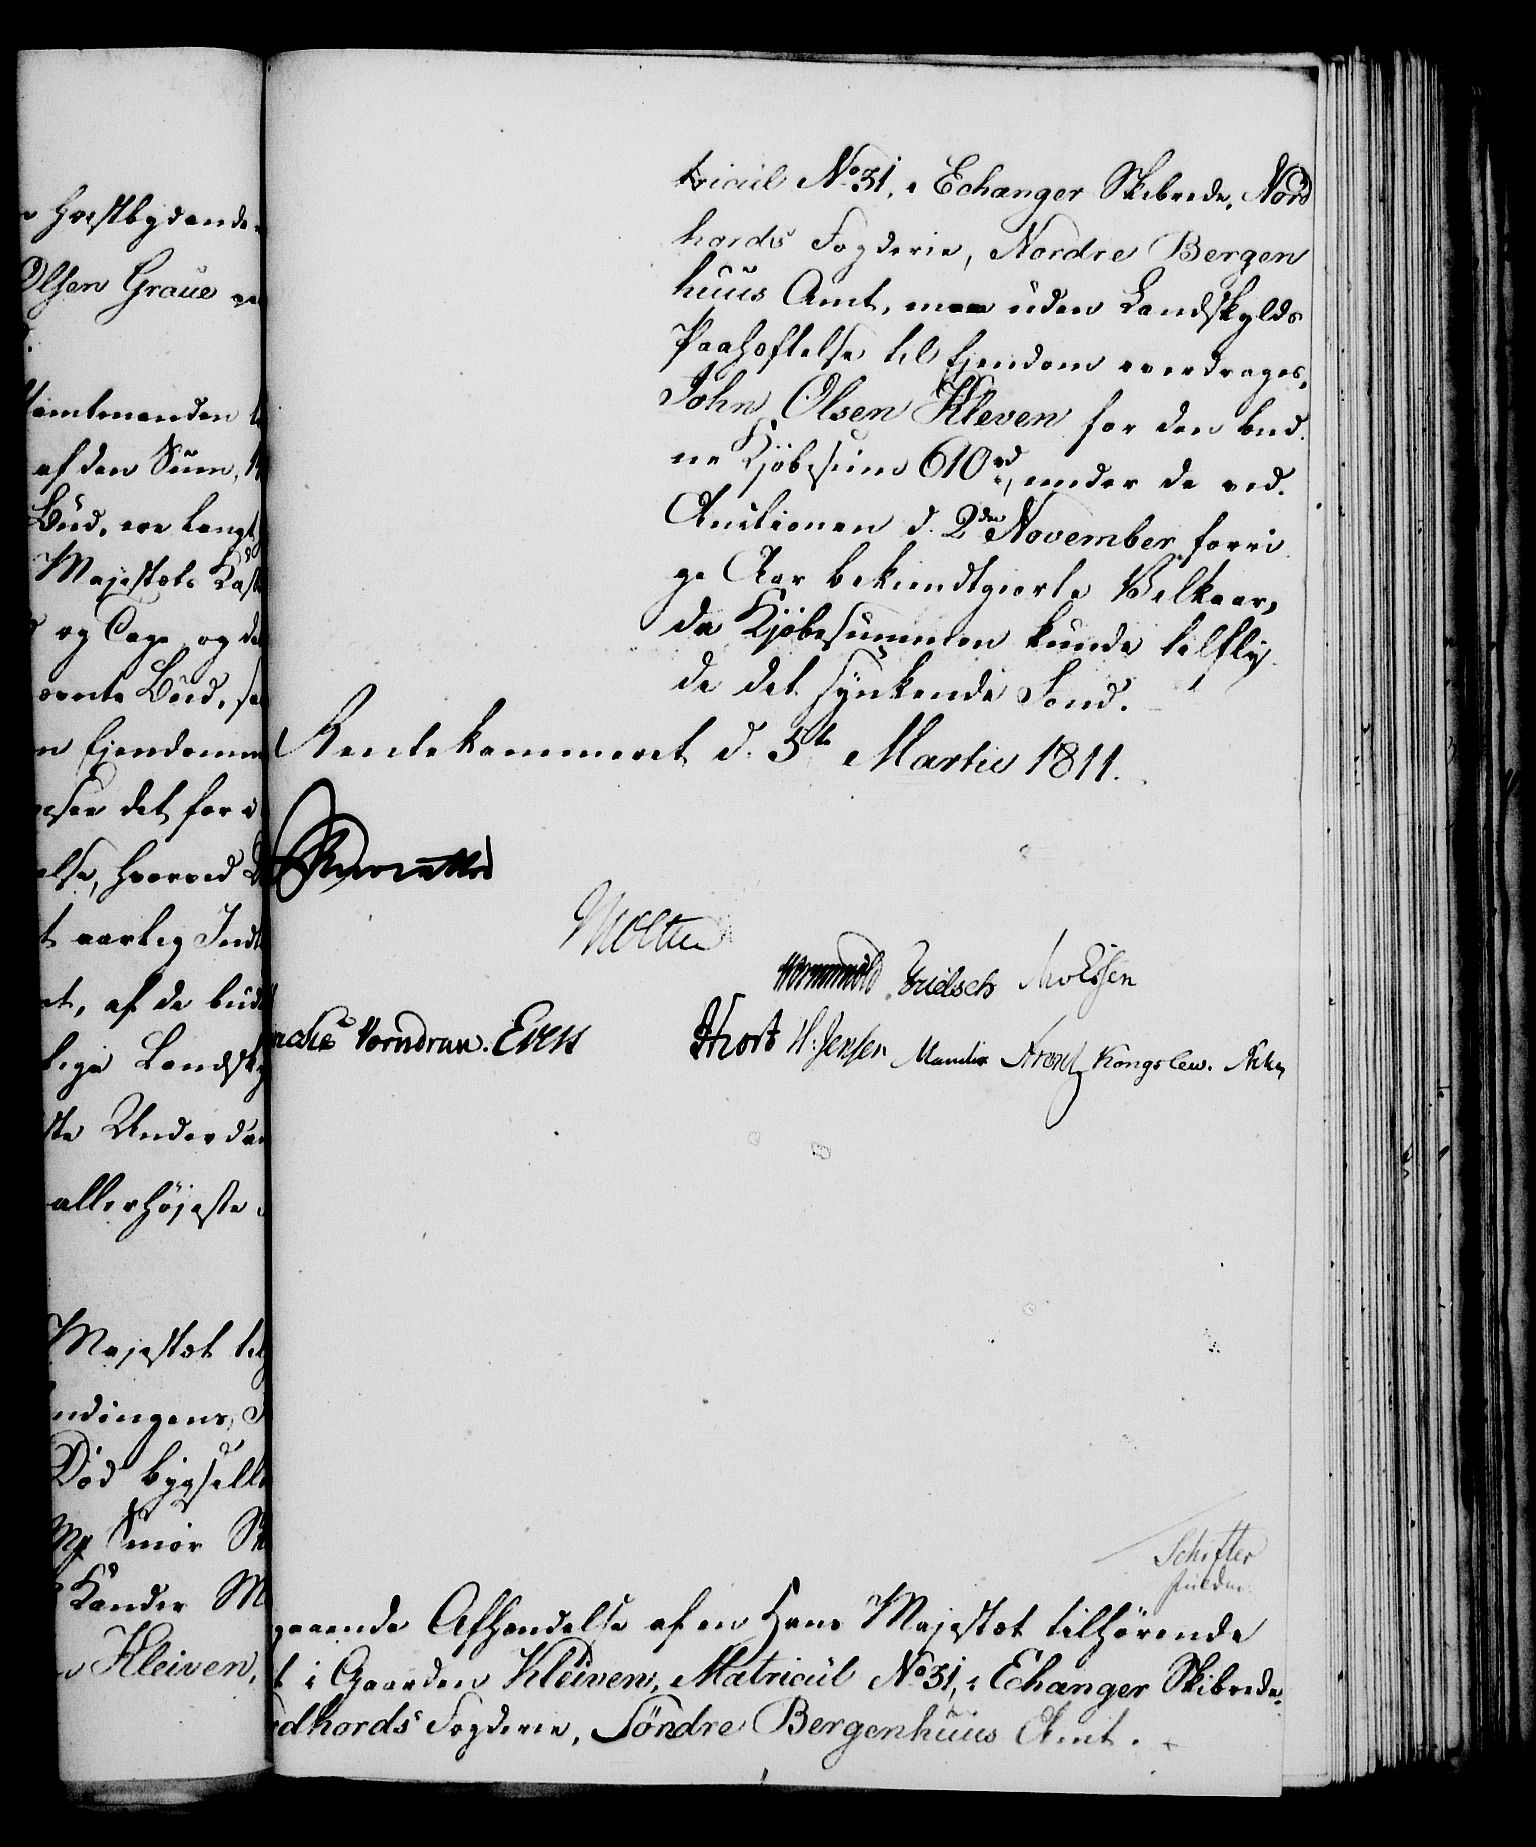 Høistbydende
Olsen Graue
Stiftamtmanden
af den Sum,
Bud, var langt
Majestæts
og Cap. og
Bud,
Ejendommen
det for
else, hvorved
aarlig Indt
, af de bud
lige Landsky
ste Underdan
allerhøjeste
Majestæt til
ndingens,
Død bygsell
Smør
Kander
Kleiven,
tricul No 31, i Echanger Skibrede, Nord
hords Fogderie, Nordre Bergen
huus Amt, maa uden Landskylds
Paaheftelse til Ejendom overdrages,
John Olsen Kleven for den bud
ne Kjøbesum 610 rd, under de ved
Auctionen d. 2den November forri
ge Aar bekiendtgiorte Vilkaar,
da Kjøbesummen kunde tilfly
de det synkende Fond.
Rentekammeret d. 5te Martii 1811.
Moltke
Wormskiold Fridsch M v Essen
Vorndran. Evers
Hiort H: Jensen Manthe Arentz Kongslew.
Schifter
gaaende Afhændelse af en Hans Majestæt tilhørende
t i Gaarden Kleiven, Matricul No 31, i Echanger Skibrede,
dhords Fogderie, Søndre Bergenhuus Amt.